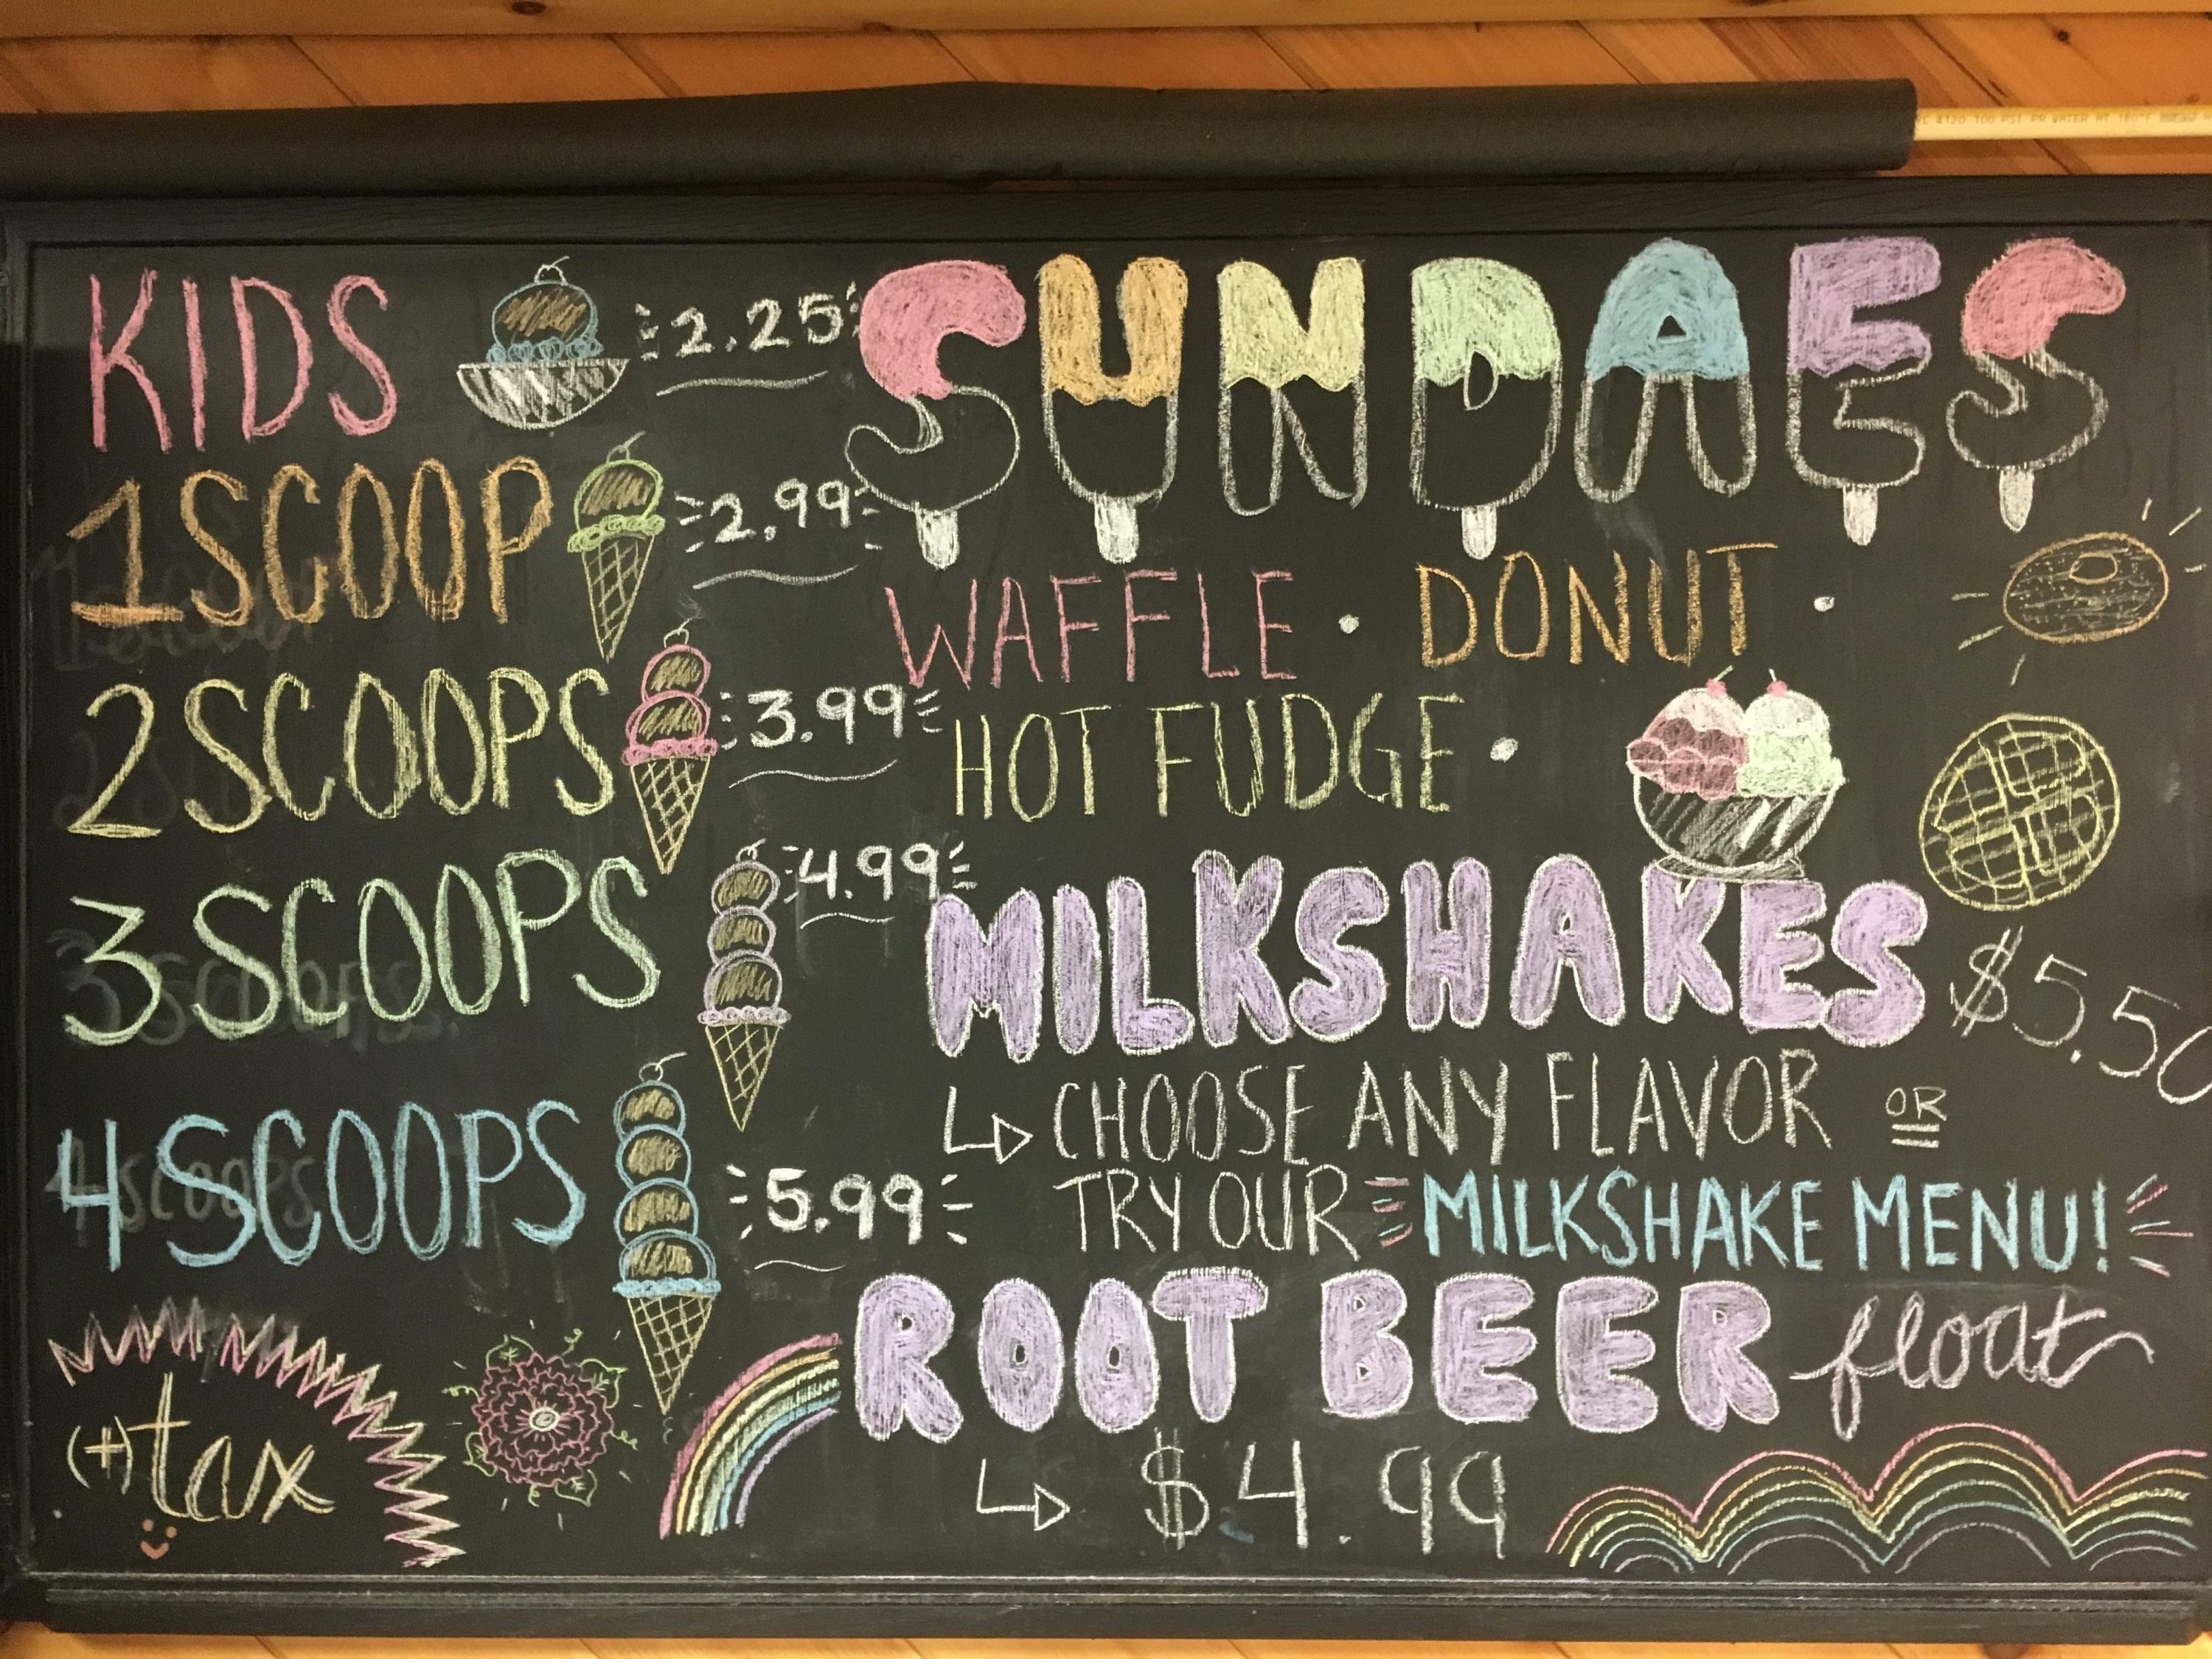 KIDS 2.25
1 SCOOP 2.99
2 SCOOPS 3.99
3 SCOOPS 4.99
4 SCOOPS 5.99
(+) tax
SUNDAES
WAFFLE • DONUT •
HOT FUDGE •
MILKSHAKES $5.50
CHOOSE ANY FLAVOR OR
TRY OUR MILKSHAKE MENU!
ROOT BEER float
$4.99